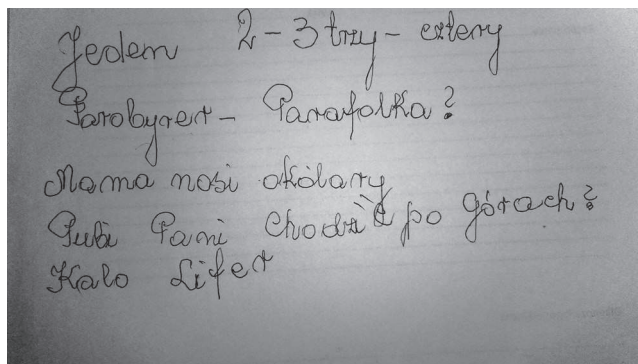 Jedem 2 - 3 trzy - cztery
Parobyrer - Parafolka?
Mama nosi okólary
Pubi Pani Chodzić po górach?
Kalo Lifer